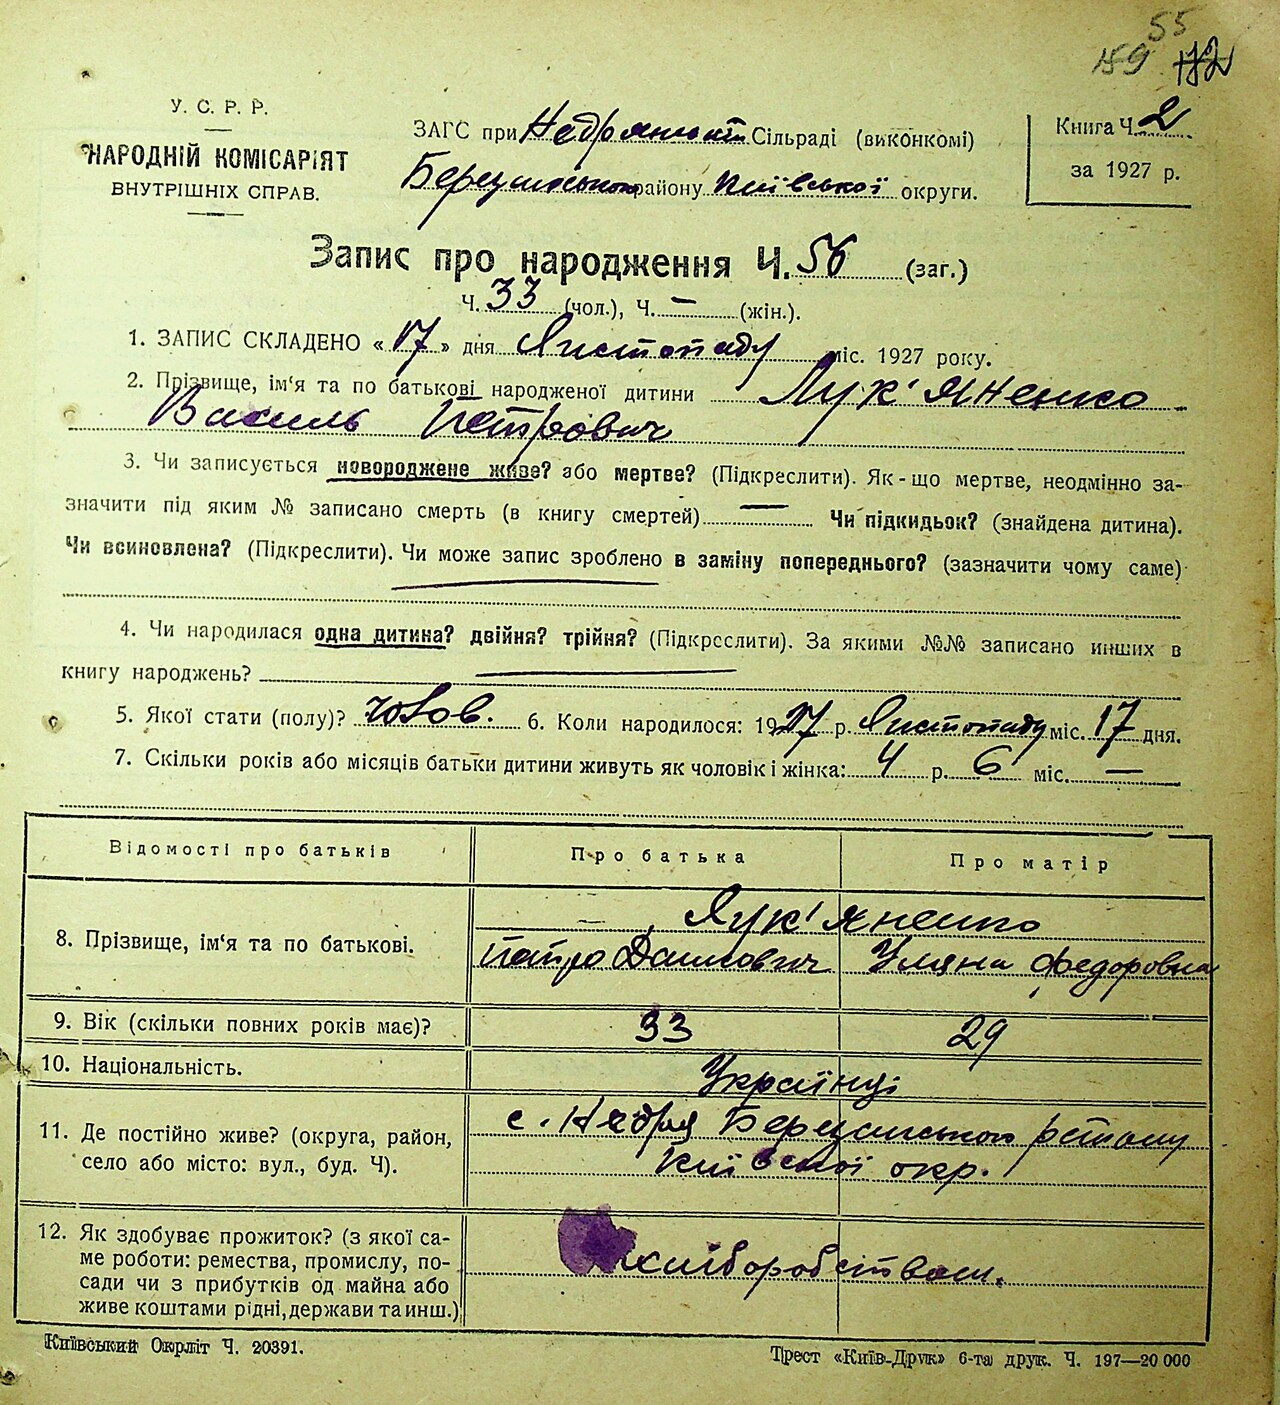 55
159 172
У. С. Р. Р.
НАРОДНІЙ КОМІСАРІЯТ
ВНУТРІШНІХ СПРАВ.
ЗАГС при Недрянській Сільраді (виконкомі)
Березанського району Київської округи.
Книга Ч. 2
за 1927 р.
Запис про народження Ч. 56 (заг.)
Ч. 33 (чол.), Ч. — (жін.).
1. ЗАПИС СКЛАДЕНО « 17 » дня Листопаду міс. 1927 року.
2. Прізвище, ім‘я та по батькові народженої дитини Лук'яненко
Василь Петрович
3. Чи записується новороджене живе? або мертве? (Підкреслити). Як-що мертве, неодмінно за-
значити під яким № записано смерть (в книгу смертей) — Чи підкидьок? (знайдена дитина).
Чи всиновлена? (Підкреслити). Чи може запис зроблено в заміну попереднього? (зазначити чому саме)
4. Чи народилася одна дитина? двійня? трійня? (Підкреслити). За якими №№ записано инших в
книгу народжень?
5. Якої стати (полу)? чолов. 6. Коли народилося: 1927 р. Листопаду міс. 17 дня.
7. Скільки років або місяців батьки дитини живуть як чоловік і жінка: 4 р. 6 міс. —
Відомості про батьків Про батька Про матір
8. Прізвище, ім‘я та по батькові. — Лук'яненко
Петро Данилович Уляна Федоровна
9. Вік (скільки повних років має)? 33 29
10. Національність. Українці
11. Де постійно живе? (округа, район,
село або місто: вул., буд. Ч).
с. Недря Березанського району
Київської окр.
12. Як здобуває прожиток? (з якої са-
ме роботи: ремества, промислу, по-
сади чи з прибутків од майна або
живе коштами рідні, держави та инш.)
хліборобством.
Київський Окрліт Ч. 20391.
Трест «Київ-Друк» 6-та друк. Ч. 197—20 000